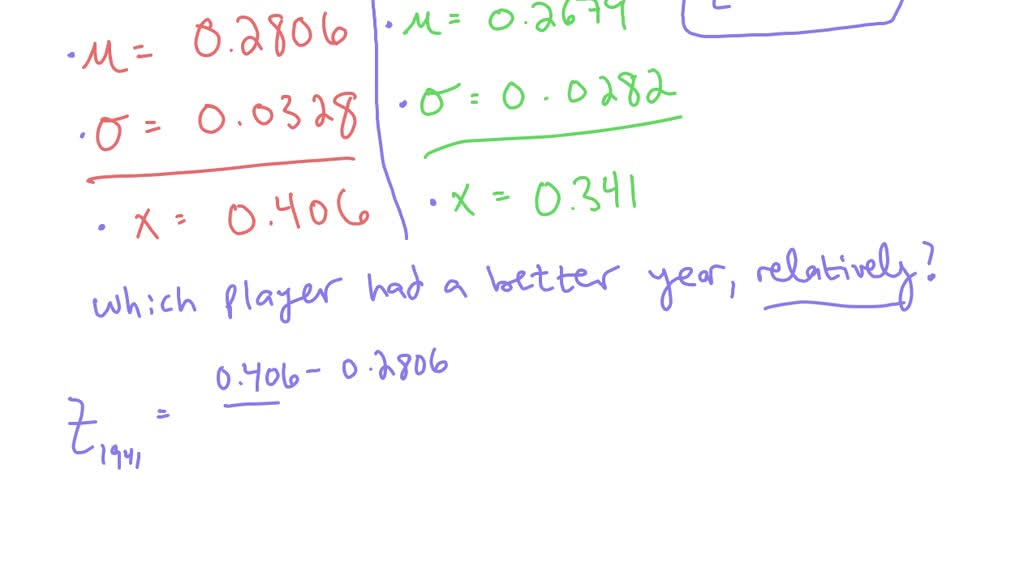 · μ = 0.2806
· σ = 0.0328
· x = 0.406
· μ = 0.2679
· σ = 0.0282
· x = 0.341
which player had a better year, relatively?
z₁₉₄₁ = 0.406 - 0.2806